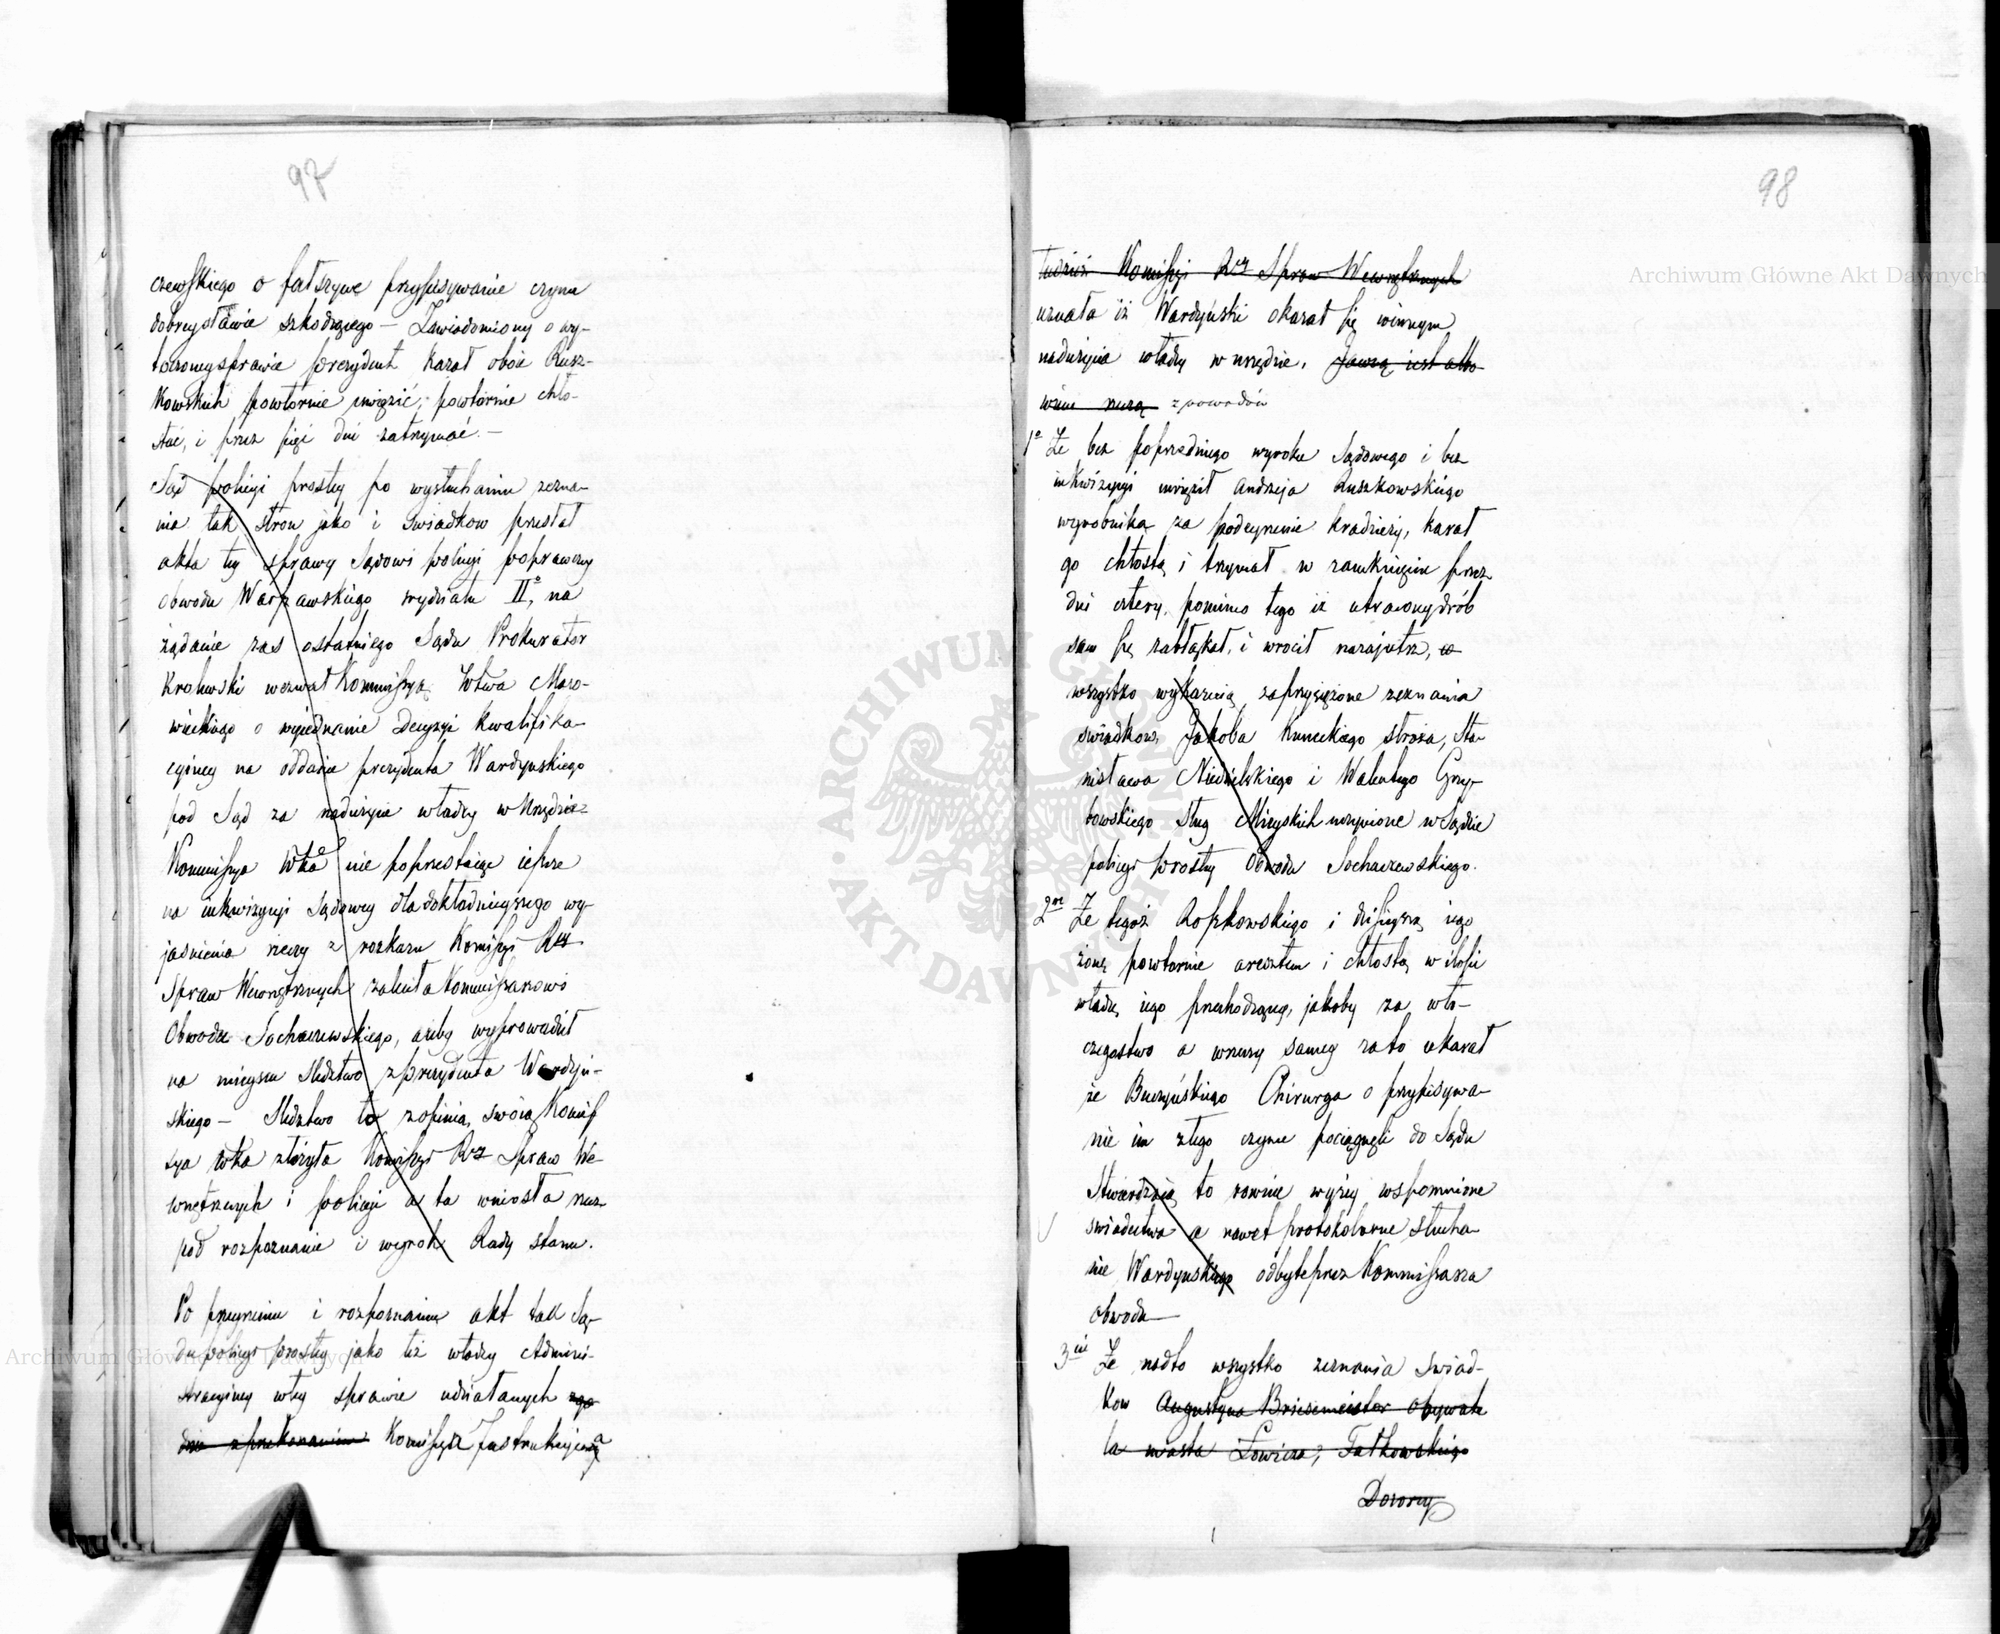 97
czewskiego o fałszywe przypisywanie czynu
dobrey sławie szkodzącego — Zawiadomiony o wy-
toczoney sprawie prezydent kazał oboie Rusz-
kowskich powtórnie uwięzić, powtórnie chło-
stać, i przez pięć dni zatrzymać. —
Sąd policyi prostey po wysłuchaniu zezna-
nia tak stron jako i swiadkow przesłał
akta tey sprawy Sądowi policyi poprawczey
obwodu Warszawskiego wydziału IIº, na
żądanie zas ostatniego Sądu Prokurator
Krolewski wezwał Kommissyą Wtwa Mazo-
wieckiego o wyiednanie Decyzyi kwalifika-
cyiney na oddanie prezydenta Wardyńskiego
pod Sąd za nadużycie władzy w Urzędzie
Kommissya Wtwa nie poprzestaiąc ieszcze
na inkwizycyi Sądowey dla dokładnieyszego wy-
jaśnienia rzeczy z rozkazu Komissyi Rz
Spraw Wewnętrznych zaleciła Kommissarzowi
Obwodu Sochaczewskiego, ażeby wyprowadził
na mieyscu śledztwo z prezydenta Wardyń-
skiego — Sledztwo to z opinią swoią Komis
sya Wtwa złożyła Komissyi Rz Spraw We-
wnętrznych i policyi a ta wniosła rzecz
pod rozpoznanie i wyrok Rady stanu.
Po przeyrzeniu i rozpoznaniu akt tak Są-
du policyi prostey jako też władzy Admini-
stracyiney w tey sprawie udziałanych zgo
dnie z przekonaniem Komissya Instrukcyjna
98
tudzież Komissyi Rz Spraw Wewnętrznych
uznała iż Wardyński okazał się winnym
nadużycia władzy w urzędzie. Jawną iest albo-
wiem rzeczą z powodów
1º Że bez poprzedniego wyroku Sądowego i bez
inkwizycyi uwięził Andrzeja Ruszkowskiego
wyrobnika za podeyrzenie kradzieży, karał
go chłostą i trzymał w zamknięciu przez
dni cztery, pomimo tego iż utracony drób
sam się zabłąkał, i wrócił nazajutrz, co
wszystko wykazuią zaprzysiężone zeznania
swiadkow Jakoba Kuneckiego stroża, Sta-
nisława Niedzielskiego i Walentego Grzy-
bowskiego sług Mieyskich uczynione w Sądzie
policyi prostey Obwodu Sochaczewskiego.
2re Że tegoż Roszkowskiego i dzisieyszą iego
żonę powtornie aresztem i chłostą w ilości
władzę iego przechodzącey, jakoby za włó-
częgostwo a w rzeczy samey za to ukarał
że Buczyńskiego Chirurga o przypisywa-
nie im złego czynu pociągnęli do Sądu
Stwierdzaią to rownie wyżey wspomnione
swiadectwa a nawet protokolarne słucha-
nie Wardyńskiego odbyte przez Kommissarza
obwodu —
3cie Że nadto wszystko zeznania swiad-
kow Augustyna Briesemeister obywate
la miasta Łowicza, Fałkowskiego
Dozorcy
Archiwum Główne Akt Dawnych
Archiwum Główne Akt Dawnych
ARCHIWUM GŁÓWNE AKT DAWNYCH